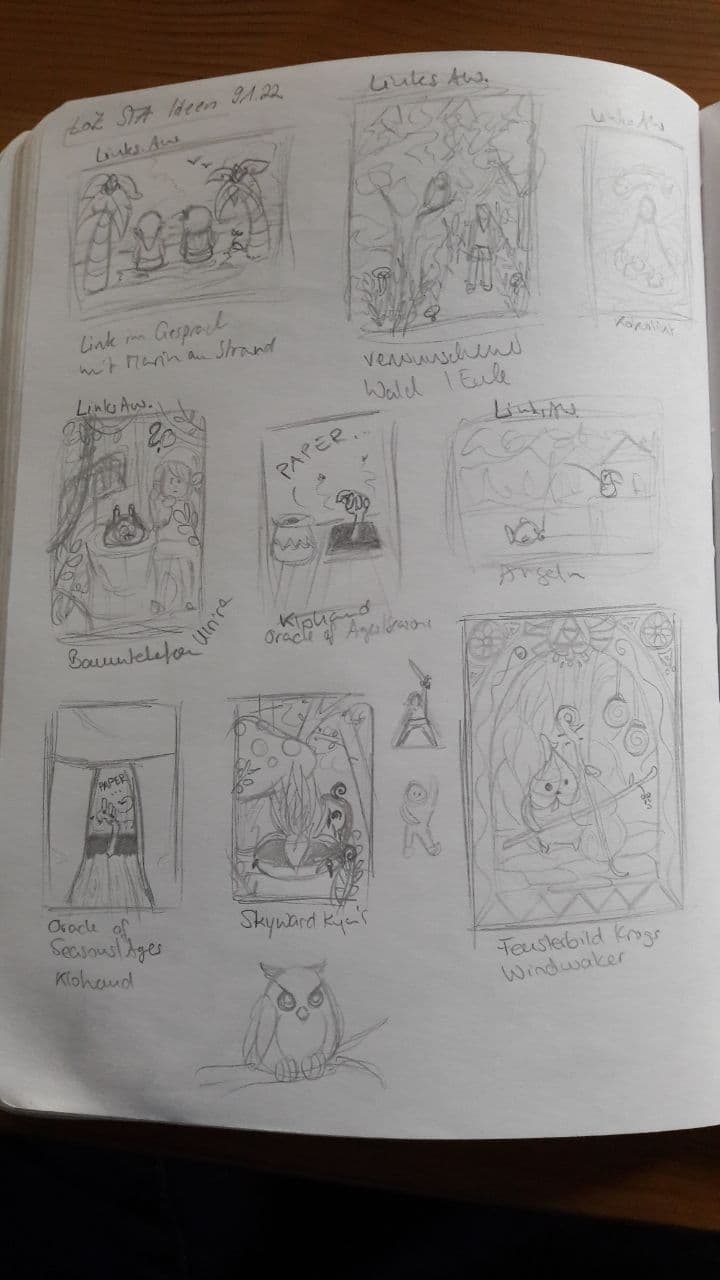 LOZ STA Ideen 9.1.22
Links Aw.
Links Aw.
Links Aw
Link im Gespräch
mit Marin am Strand
Wald / Eule
Links Aw.
PAPER...
Links Aw.
Baumtelefon Ulrira
Klohand
Oracle of Ages
Angeln
PAPER
...
Oracle of
Seasons/Ages
Klohand
Skyward Kyu's
Fensterbild Krogs
Windwaker